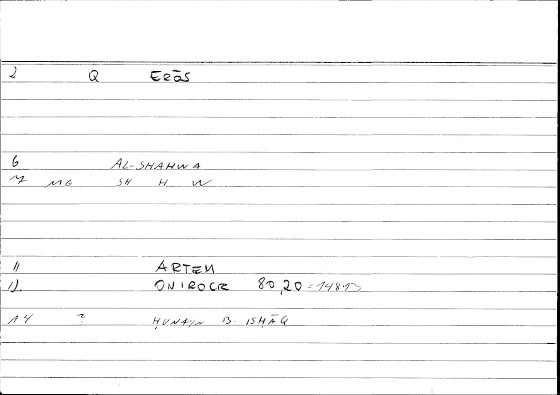 2 Q Erōs
6 AL-SHAHWA
7 MG SH H W
11 ARTEM
12. ONIROCR 80,20 = 14813
14 ? ḤUNAYN B. ISḤĀQ